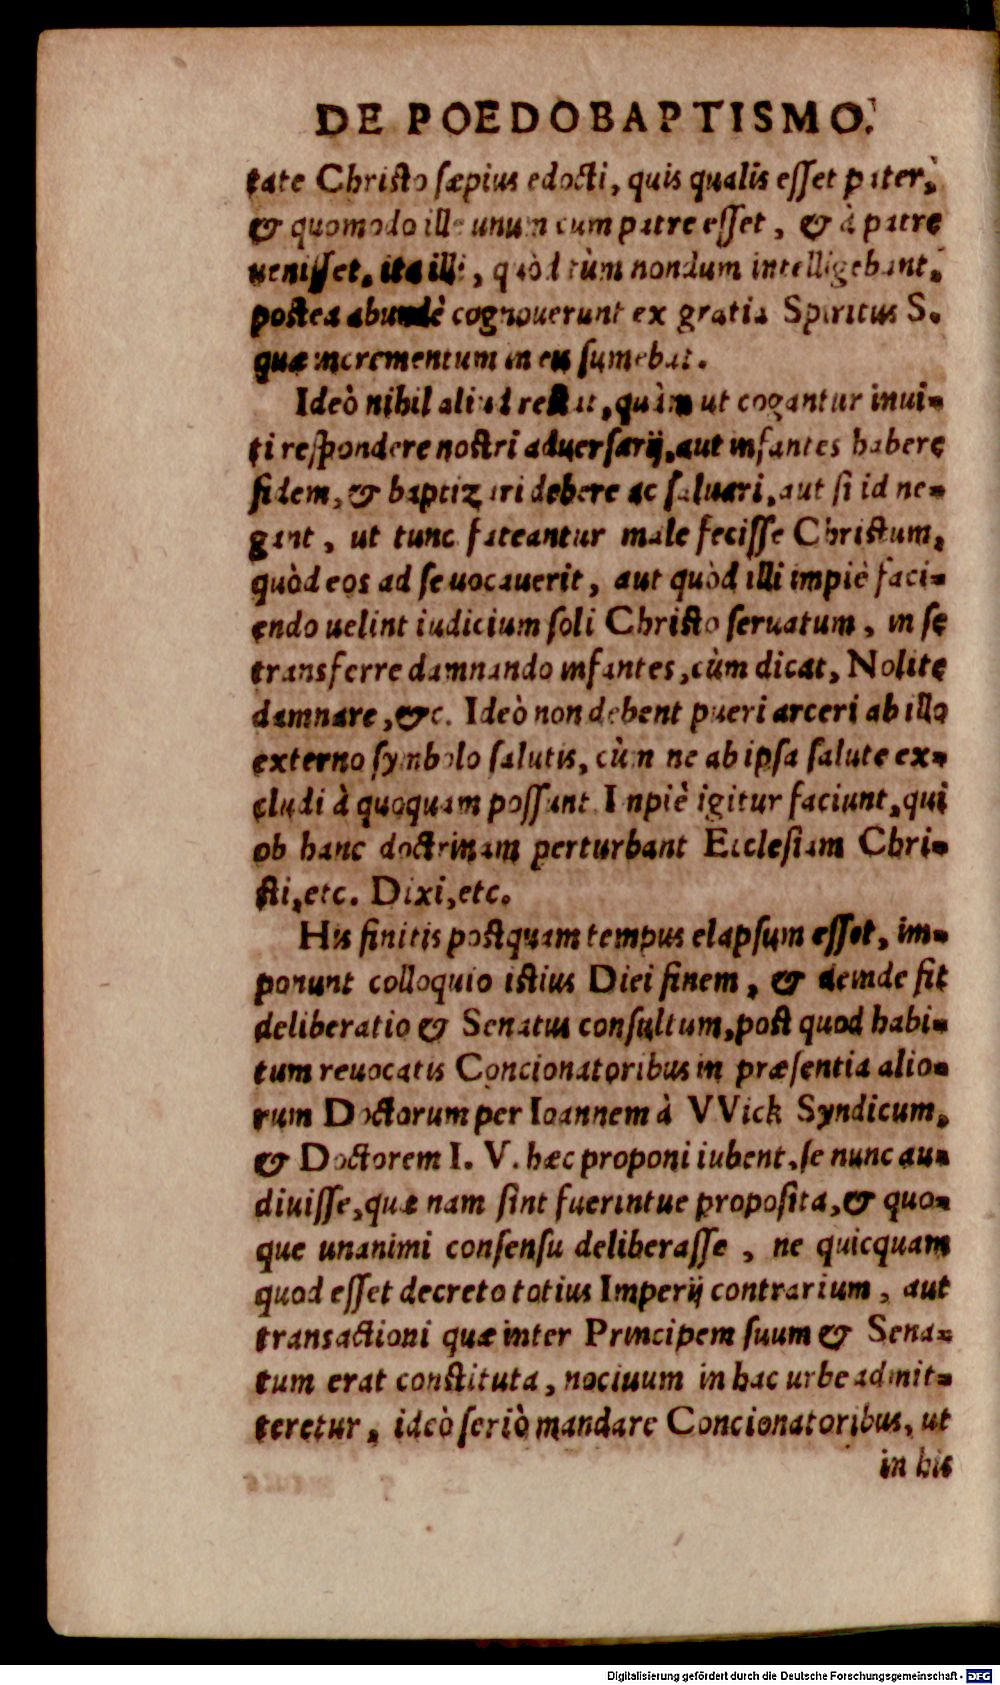 DE POEDOBAPTISMO.
tate Christo sæpius edocti, quis qualis esset pater,
& quomodo ille unum cum patre esset, & à patre
uenisset, ita illi, quòd tùm nondum intelligebant,
postea abundè cognouerunt ex gratia Spiritus S.
quæ incrementum in eis sumebat.
Ideò nihil aliud restat, quàm ut cogantur inui-
ti respondere nostri aduersarij, aut infantes habere
fidem, & baptizari debere ac saluari, aut si id ne-
gant, ut tunc fateantur male fecisse Christum,
quòd eos ad se uocauerit, aut quòd illi impiè faci-
endo uelint iudicium soli Christo seruatum, in se
transferre damnando infantes, cùm dicat, Nolite
damnare, &c. Ideò non debent pueri arceri ab illo
externo symbolo salutis, cùm ne ab ipsa salute ex-
cludi à quoquam possunt. Impiè igitur faciunt, qui
ob hanc doctrinam perturbant Ecclesiam Chri-
sti, etc. Dixi, etc.
His finitis postquam tempus elapsum esset, im-
ponunt colloquio istius Diei finem, & deinde fit
deliberatio & Senatus consultum, post quod habi-
tum reuocatis Concionatoribus in præsentia alio-
rum Doctorum per Ioannem à VVick Syndicum,
& Doctorem I. V. hæc proponi iubent, se nunc au-
diuisse, quæ nam sint fuerintue proposita, & quo-
que unanimi consensu deliberasse, ne quicquam
quod esset decreto totius Imperij contrarium, aut
transactioni quæ inter Principem suum & Sena-
tum erat constituta, nociuum in hac urbe admit-
teretur, ideò seriò mandare Concionatoribus, ut
in his
Digitalisierung gefördert durch die Deutsche Forschungsgemeinschaft - DFG